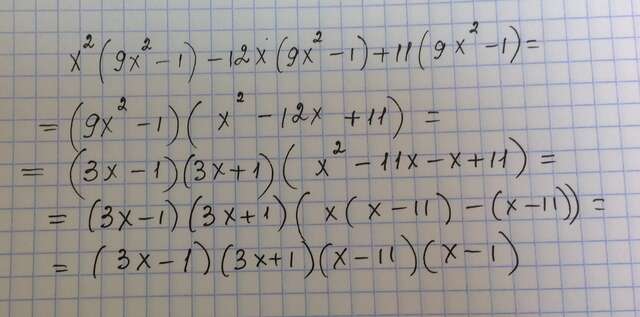 x² (9x² - 1) - 12x (9x² - 1) + 11 (9x² - 1) =
= (9x² - 1) ( x² - 12x + 11 ) =
= (3x - 1) (3x + 1) ( x² - 11x - x + 11 ) =
= (3x - 1) (3x + 1) ( x ( x - 11 ) - ( x - 11 )) =
= ( 3x - 1 ) ( 3x + 1 ) ( x - 11 ) ( x - 1 )